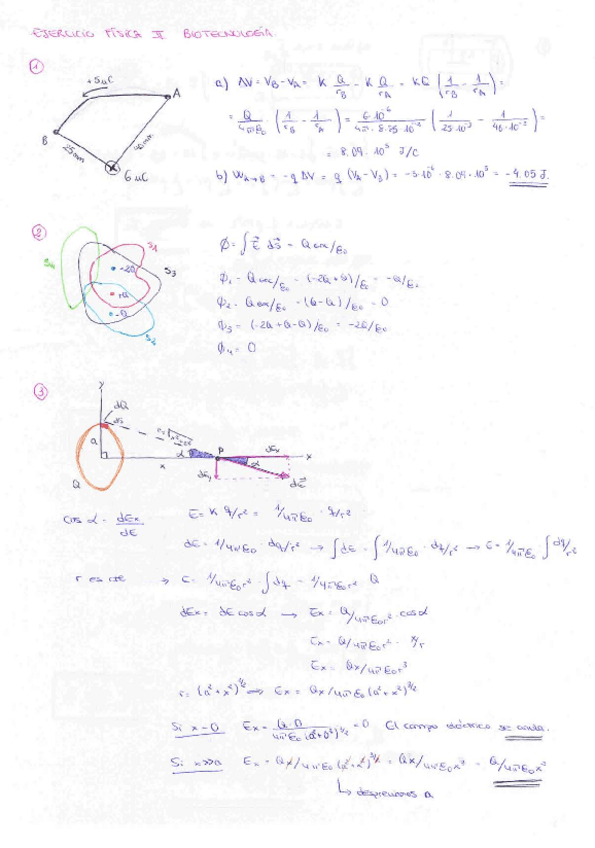 EJERCICIO FÍSICA II BIOTECNOLOGÍA.
1
+5μC
A
B
25mm
40mm
6 μC
a) ΔV = V_B - V_A = K Q/r_B - K Q/r_A = KQ (1/r_B - 1/r_A) =
= Q/4πε₀ (1/r_B - 1/r_A) = 6·10⁻⁶/4π·8.85·10⁻¹² (1/25·10⁻³ - 1/40·10⁻³) =
= 8.09·10⁵ J/C
b) W_A→B = -q ΔV = q (V_A - V_B) = -5·10⁻⁶·8.09·10⁵ = -4.05 J.
2
S4
S1
S3
-2Q
+Q
-Q
S2
ϕ = ∫ E dS = Qenc/ε₀
ϕ₁ = Qenc/ε₀ = (-2Q+Q)/ε₀ = -Q/ε₀
ϕ₂ = Qenc/ε₀ = (Q-Q)/ε₀ = 0
ϕ₃ = (-2Q+Q-Q)/ε₀ = -2Q/ε₀
ϕ₄ = 0
3
y
dQ
dS
a
Q
x
α
P
dEx
α
x
dEy
dE
cos α = dEx/dE
E = K q/r² = 1/4πε₀ · q/r²
dE = 1/4πε₀ · dq/r² → ∫dE = ∫1/4πε₀ · dq/r² → E = 1/4πε₀ ∫dq/r²
r es cte ⇒ E = 1/4πε₀r² · ∫dq = 1/4πε₀r² · Q
dEx = dE cos α → Ex = Q/4πε₀r² · cos α
Ex = Q/4πε₀r² · x/r
Ex = Qx/4πε₀r³
r = (a²+x²)^1/2 → Ex = Qx/4πε₀(a²+x²)^3/2
Si x=0 Ex = Q·0/4πε₀(a²+0²)^3/2 = 0 El campo eléctrico se anula.
Si x>>a Ex = Qx/4πε₀(a²+x²)^3/2 = Qx/4πε₀x³ = Q/4πε₀x²
↳ despreciamos a